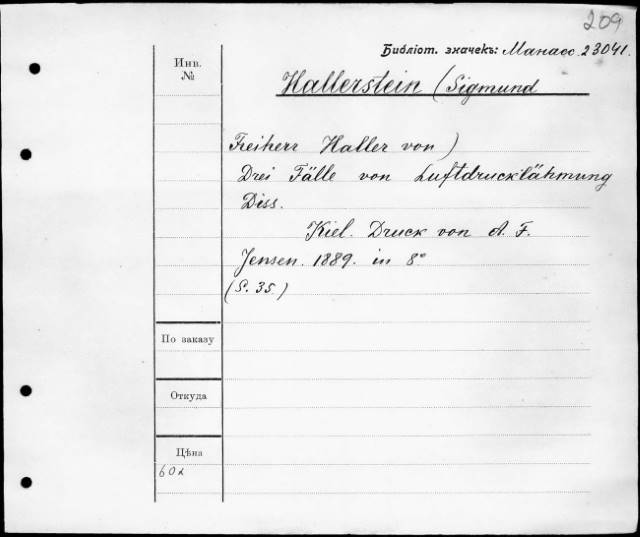 209
Библіот. значекъ: Манасс. 23041.
Инв.
№
Hallerstein (Sigmund
Freiherr Haller von)
Drei Fälle von Luftdrucklähmung
Diss.
Kiel. Druck von A. F.
Jensen. 1889. in 8°
(S. 35.)
По заказу
Откуда
Цѣна
60к